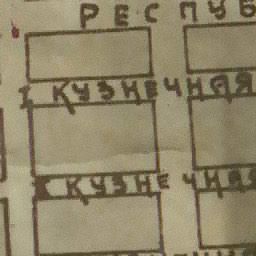 РЕСПУБ
I КУЗНЕЧНАЯ
II КУЗНЕЧНАЯ